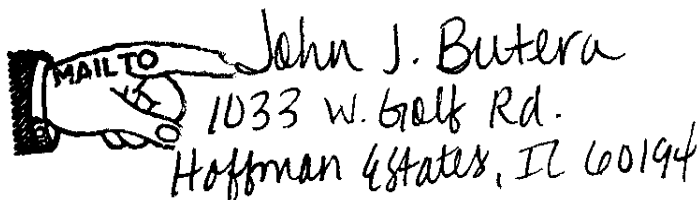 MAIL TO
John J. Butera
1033 W. Golf Rd.
Hoffman Estates, IL 60194